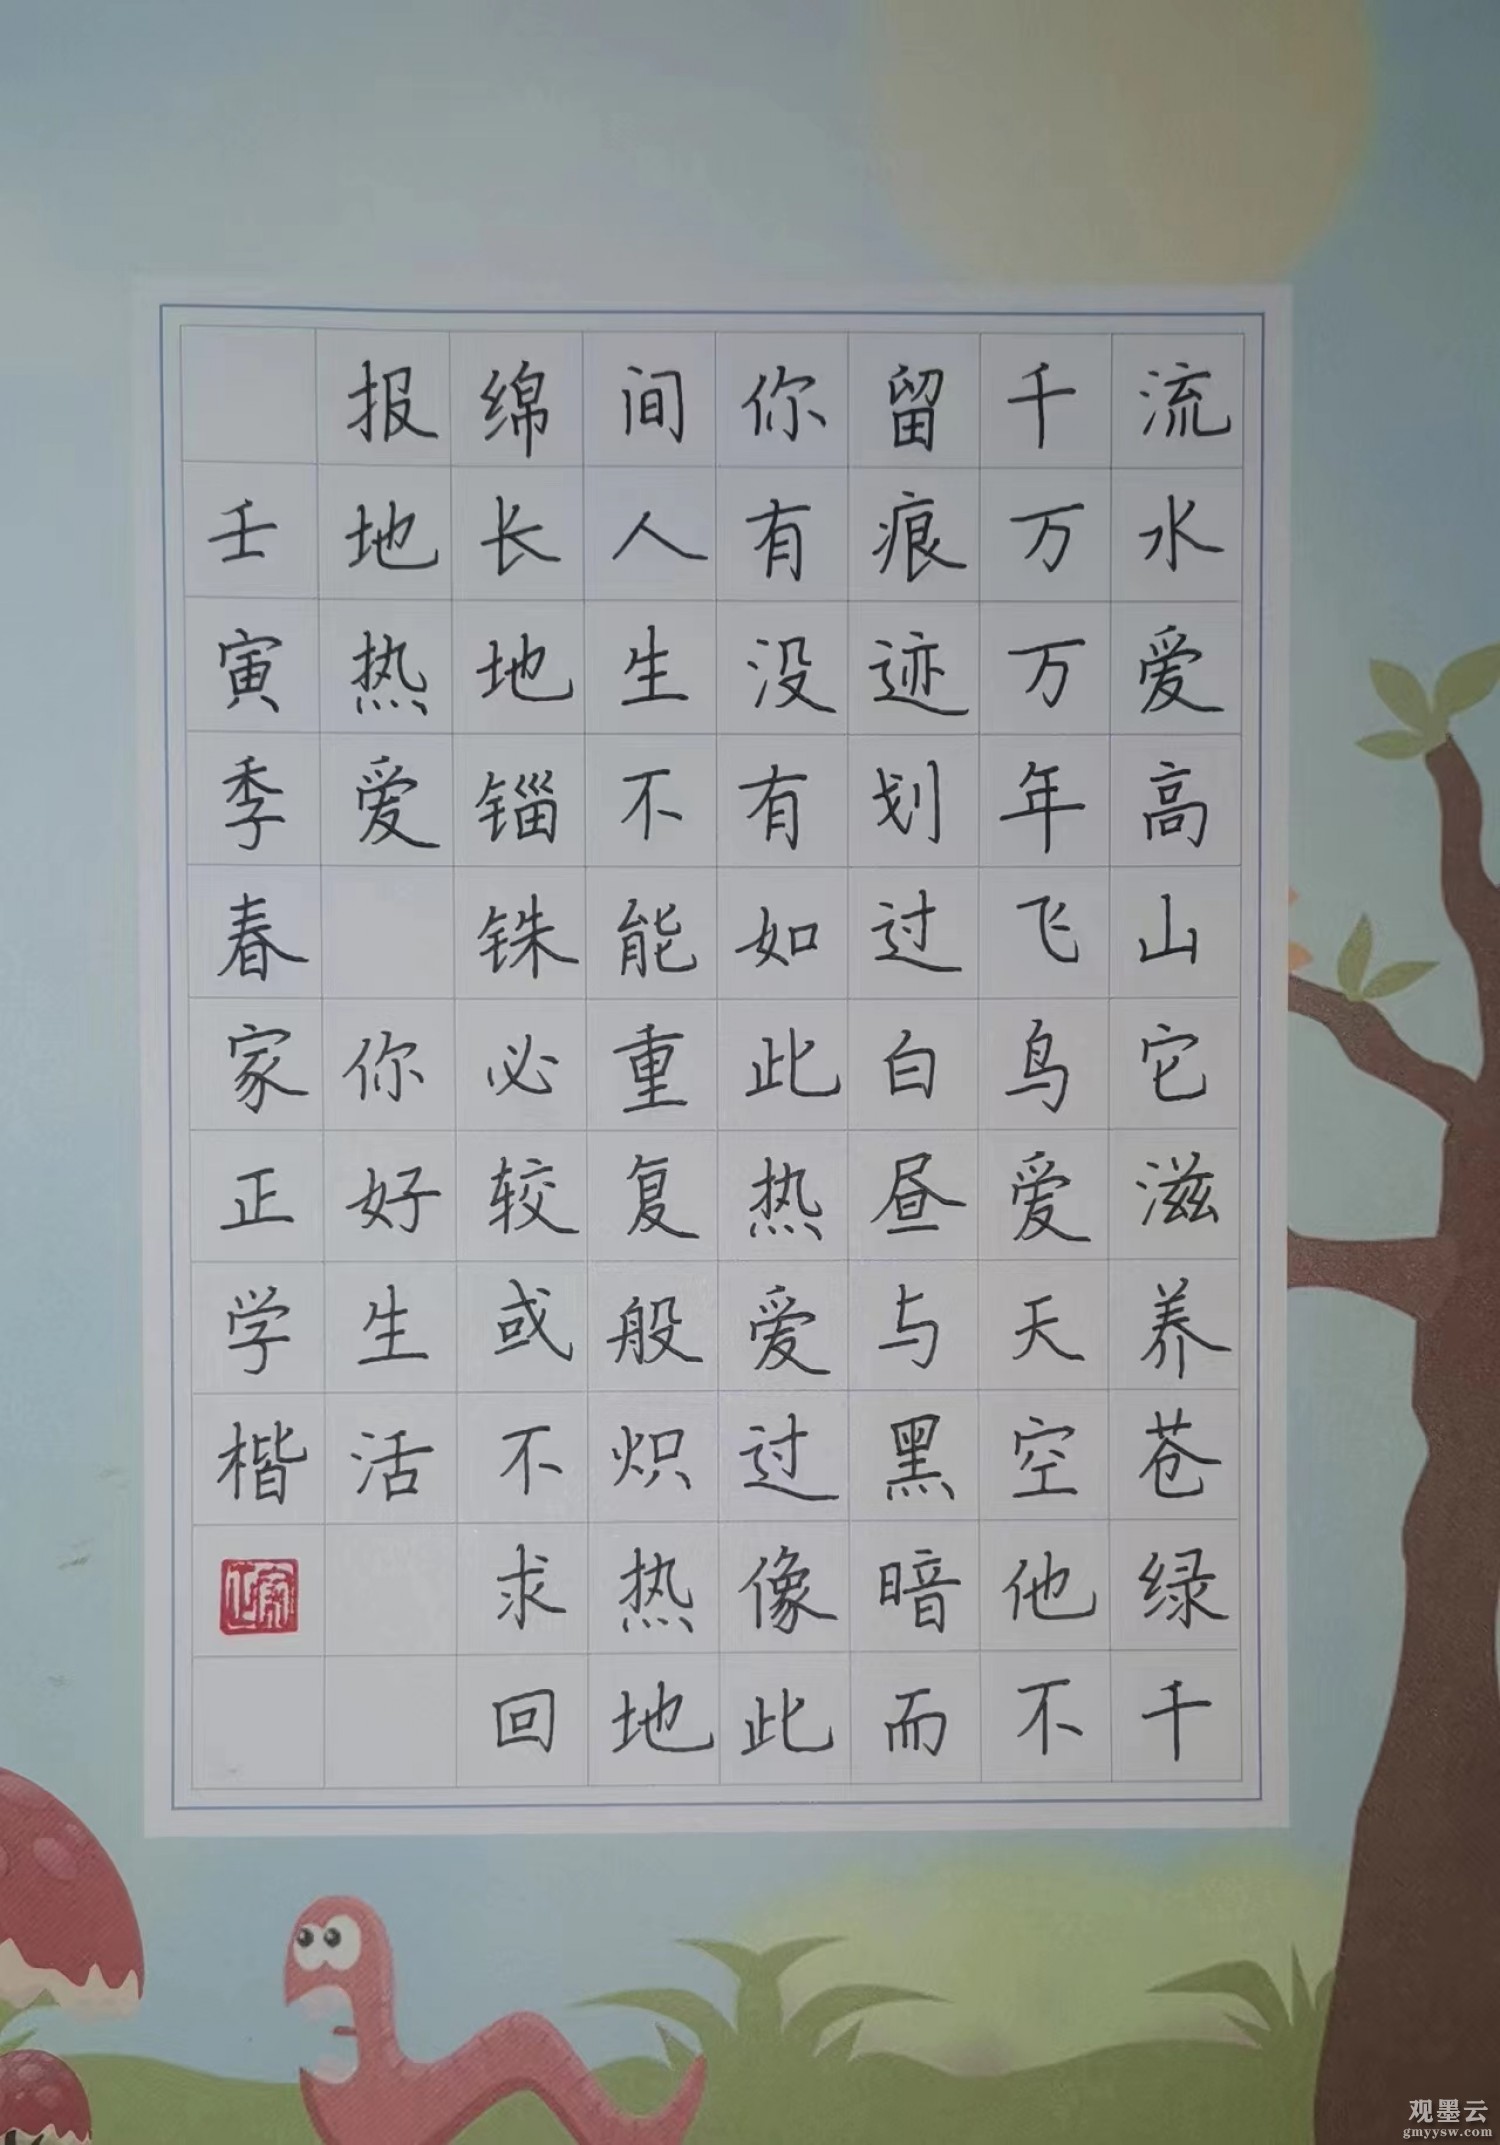 流水爱高山它滋养苍绿千
千万万年飞鸟爱天空他不
留痕迹划过白昼与黑暗而
你有没有如此热爱过像此
间人生不能重复般炽热地
绵长地锱铢必较或不求回
报地热爱 你好生活
壬寅季春家正学楷
家正
观墨云
gmyysw.com